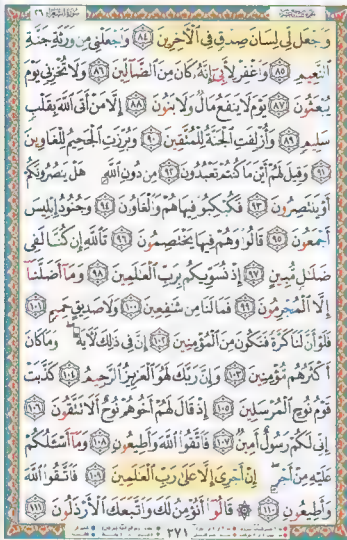 سورة الشعراء ٢٦
وَٱجْعَل لِّى لِسَانَ صِدْقٍ فِى ٱلْـَٔاخِرِينَ ٨٤ وَٱجْعَلْنِى مِن وَرَثَةِ جَنَّةِ
ٱلنَّعِيمِ ٨٥ وَٱغْفِرْ لِأَبِىٓ إِنَّهُۥ كَانَ مِنَ ٱلضَّآلِّينَ ٨٦ وَلَا تُخْزِنِى يَوْمَ
يُبْعَثُونَ ٨٧ يَوْمَ لَا يَنفَعُ مَالٌ وَلَا بَنُونَ ٨٨ إِلَّا مَنْ أَتَى ٱللَّهَ بِقَلْبٍ
سَلِيمٍ ٨٩ وَأُزْلِفَتِ ٱلْجَنَّةُ لِلْمُتَّقِينَ ٩٠ وَبُرِّزَتِ ٱلْجَحِيمُ لِلْغَاوِينَ
٩١ وَقِيلَ لَهُمْ أَيْنَ مَا كُنتُمْ تَعْبُدُونَ ٩٢ مِن دُونِ ٱللَّهِ هَلْ يَنصُرُونَكُمْ
أَوْ يَنتَصِرُونَ ٩٣ فَكُبْكِبُوا۟ فِيهَا هُمْ وَٱلْغَاوُۥنَ ٩٤ وَجُنُودُ إِبْلِيسَ
أَجْمَعُونَ ٩٥ قَالُوا۟ وَهُمْ فِيهَا يَخْتَصِمُونَ ٩٦ تَٱللَّهِ إِن كُنَّا لَفِى
ضَلَٰلٍ مُّبِينٍ ٩٧ إِذْ نُسَوِّيكُم بِرَبِّ ٱلْعَٰلَمِينَ ٩٨ وَمَآ أَضَلَّنَآ
إِلَّا ٱلْمُجْرِمُونَ ٩٩ فَمَا لَنَا مِن شَٰفِعِينَ ١٠٠ وَلَا صَدِيقٍ حَمِيمٍ ١٠١
فَلَوْ أَنَّ لَنَا كَرَّةً فَنَكُونَ مِنَ ٱلْمُؤْمِنِينَ ١٠٢ إِنَّ فِى ذَٰلِكَ لَـَٔايَةً وَمَا كَانَ
أَكْثَرُهُم مُّؤْمِنِينَ ١٠٣ وَإِنَّ رَبَّكَ لَهُوَ ٱلْعَزِيزُ ٱلرَّحِيمُ ١٠٤ كَذَّبَتْ
قَوْمُ نُوحٍ ٱلْمُرْسَلِينَ ١٠٥ إِذْ قَالَ لَهُمْ أَخُوهُمْ نُوحٌ أَلَا تَتَّقُونَ ١٠٦
إِنِّى لَكُمْ رَسُولٌ أَمِينٌ ١٠٧ فَٱتَّقُوا۟ ٱللَّهَ وَأَطِيعُونِ ١٠٨ وَمَآ أَسْـَٔلُكُمْ
عَلَيْهِ مِنْ أَجْرٍ إِنْ أَجْرِىَ إِلَّا عَلَىٰ رَبِّ ٱلْعَٰلَمِينَ ١٠٩ فَٱتَّقُوا۟ ٱللَّهَ
وَأَطِيعُونِ ١١٠ ۞ قَالُوٓا۟ أَنُؤْمِنُ لَكَ وَٱتَّبَعَكَ ٱلْأَرْذَلُونَ ١١١
٣٧١